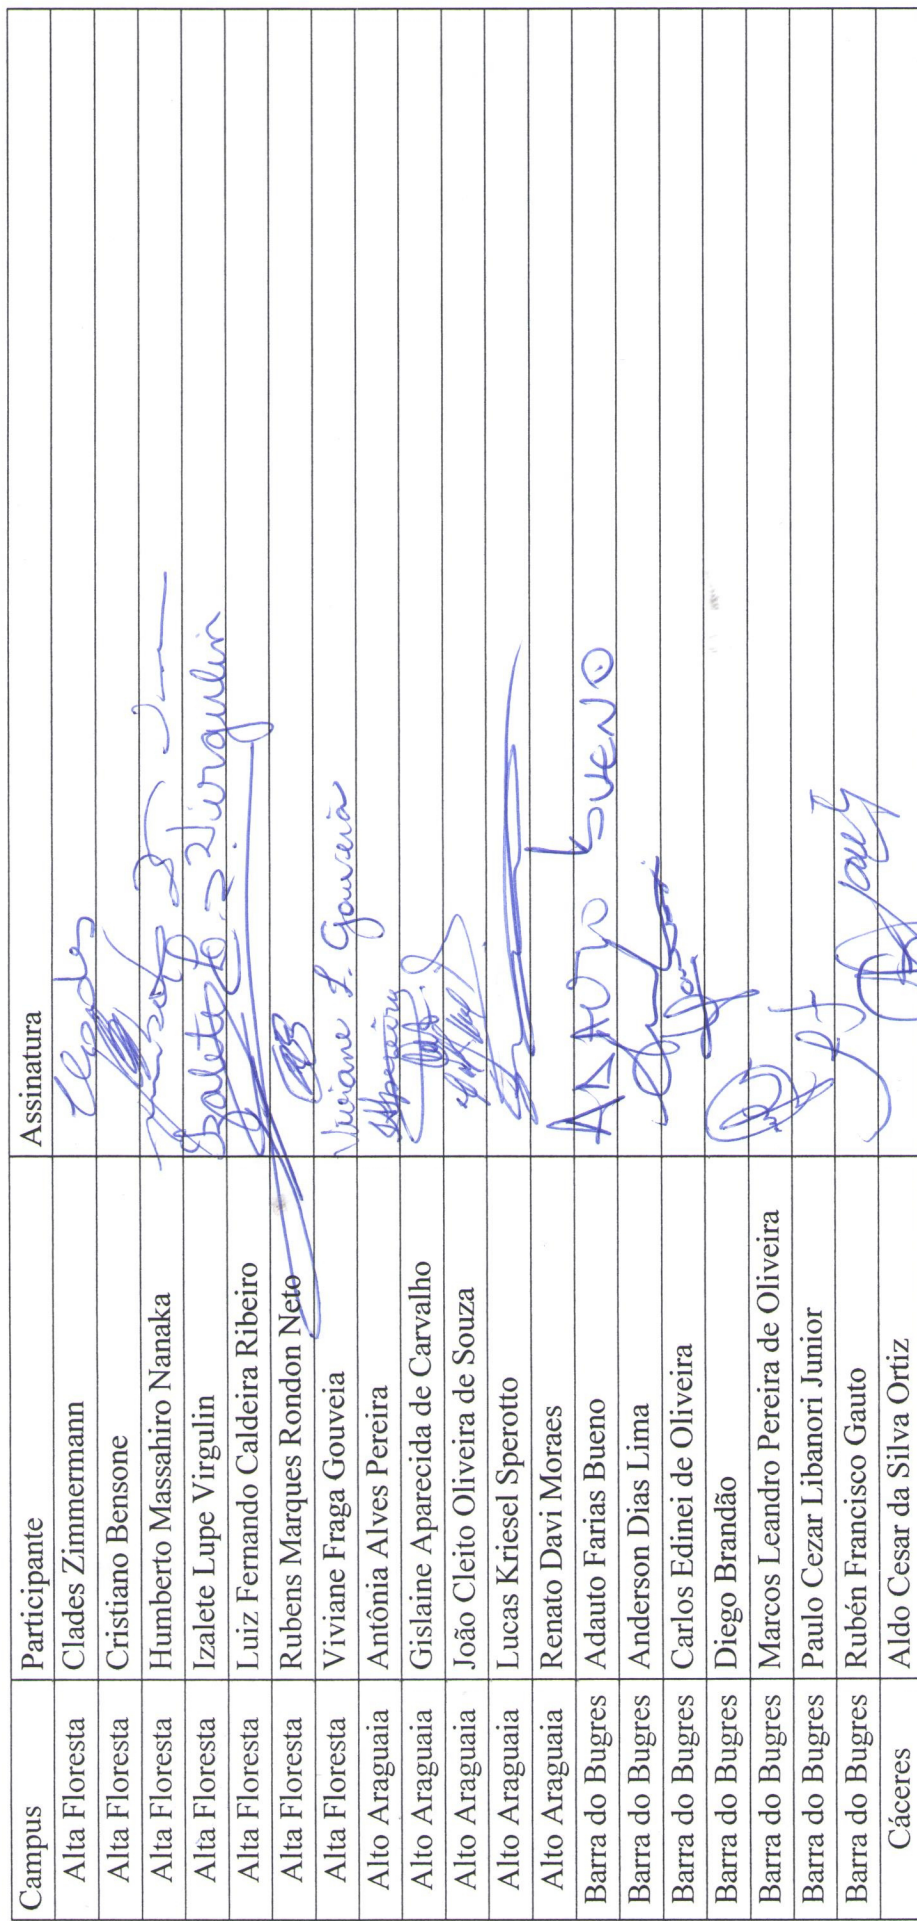 Campus Participante Assinatura
Alta Floresta Clades Zimmermann Clades
Alta Floresta Cristiano Bensone
Alta Floresta Humberto Massahiro Nanaka
Alta Floresta Izalete Lupe Virgulin Izalete Virgulin
Alta Floresta Luiz Fernando Caldeira Ribeiro
Alta Floresta Rubens Marques Rondon Neto
Alta Floresta Viviane Fraga Gouveia Viviane F. Gouveia
Alto Araguaia Antônia Alves Pereira AAPereira
Alto Araguaia Gislaine Aparecida de Carvalho
Alto Araguaia João Cleito Oliveira de Souza
Alto Araguaia Lucas Kriesel Sperotto
Alto Araguaia Renato Davi Moraes
Barra do Bugres Adauto Farias Bueno ADAUTO BUENO
Barra do Bugres Anderson Dias Lima
Barra do Bugres Carlos Edinei de Oliveira
Barra do Bugres Diego Brandão
Barra do Bugres Marcos Leandro Pereira de Oliveira
Barra do Bugres Paulo Cezar Libanori Junior
Barra do Bugres Rubén Francisco Gauto
Cáceres Aldo Cesar da Silva Ortiz